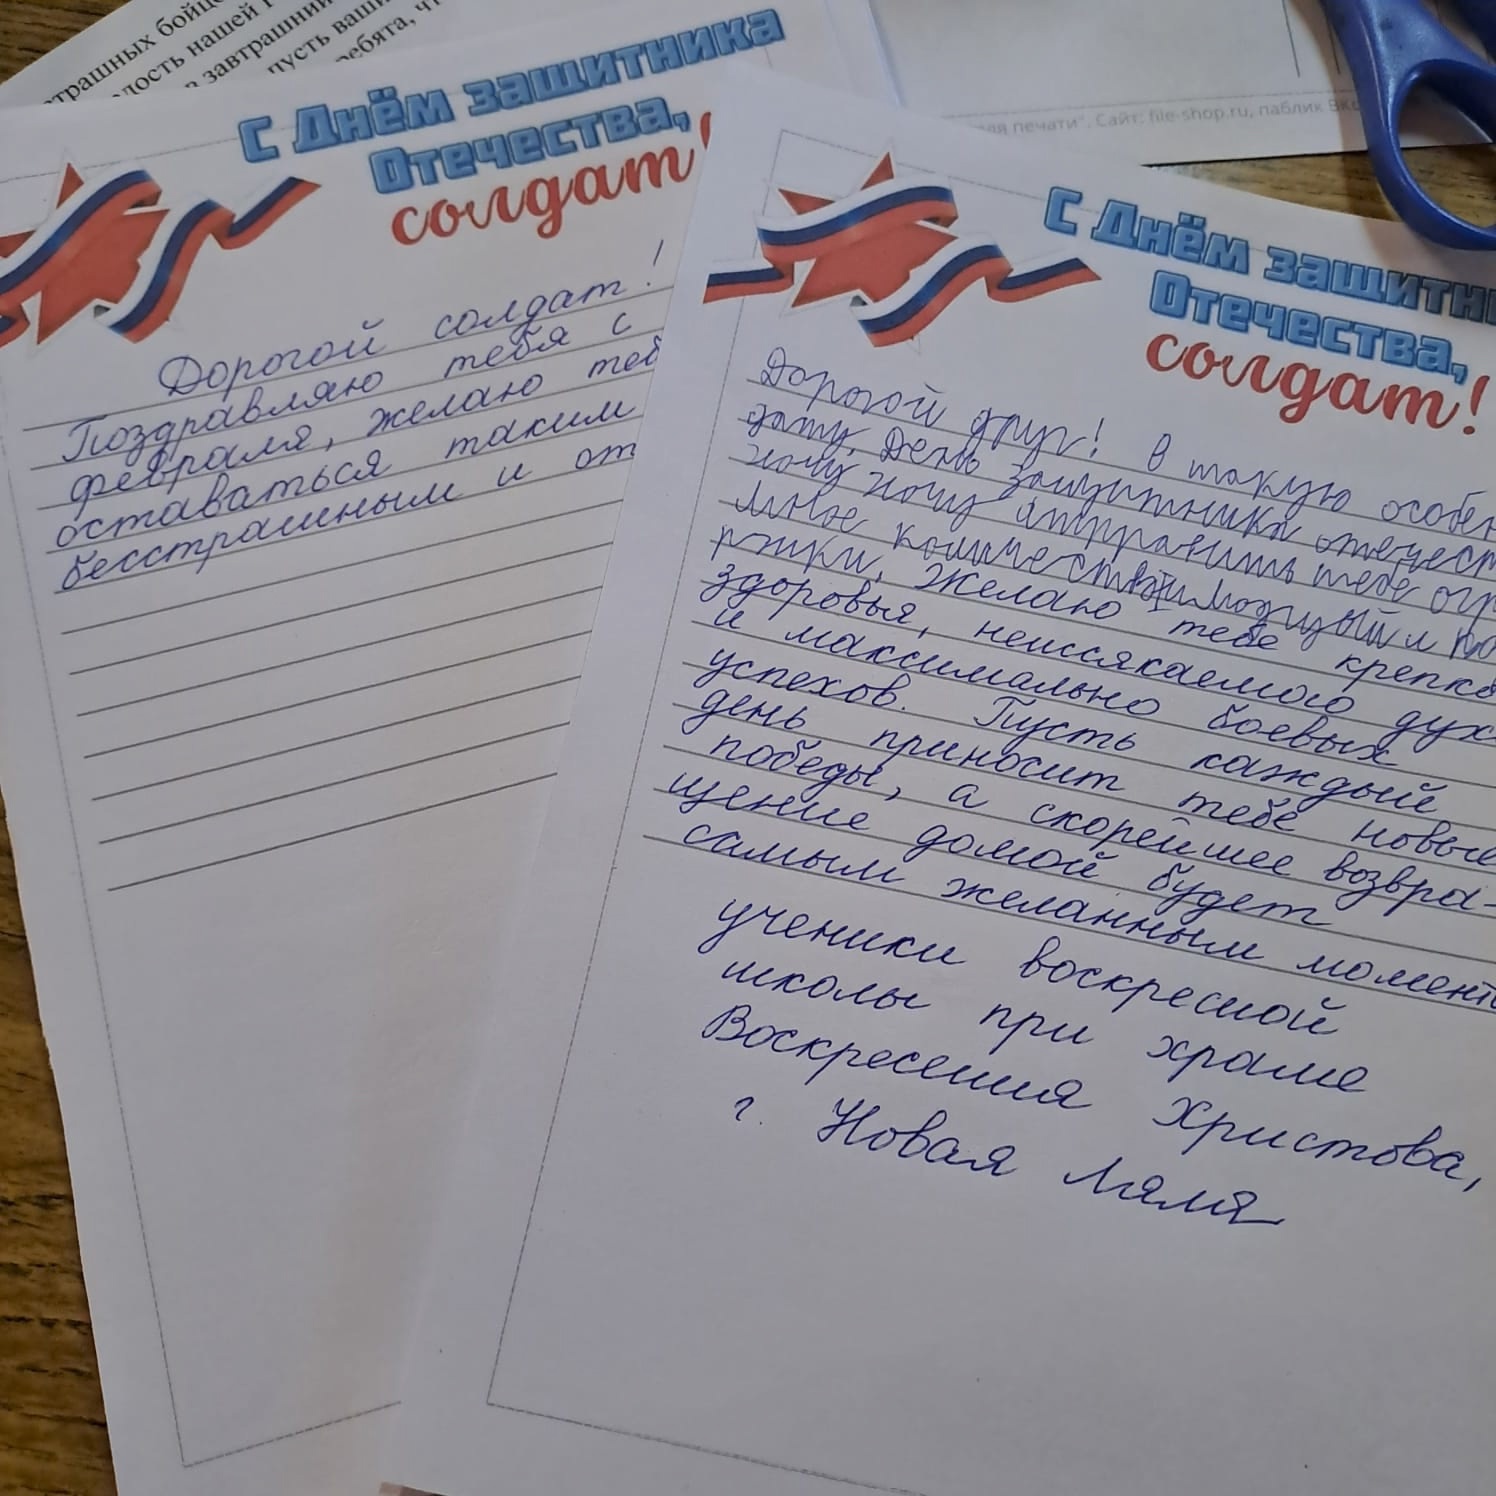 трашных бойц
дость нашей
в завтрашний
пусть ваши
ребята, ч
С Днём защитника
Отечества,
солдат!
Дорогой солдат!
Поздравляю тебя с
февраля, желаю теб
оставаться таким
бесстрашным и от
для печати". Сайт: file-shop.ru, паблик ВКо
С Днём защитн
Отечества,
солдат!
Дорогой друг! В такую особен
дату, День защитника отечест
хочу хочу отправить тебе огр
мное количество и
ржки. Желаю тебе крепко
здоровья, неиссякаемого дух
и максимально боевых
успехов. Пусть каждый
день приносит тебе новые
победы, а скорейшее возвра-
щение домой будет
самым желанным момент
ученики воскресной
школы при храме
Воскресения Христова,
г. Новая Ляля